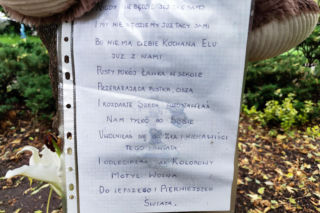 I MY NIE BĘDZIEMY JUŻ TACY SAMI
BO NIE MA CIEBIE KOCHANA ELU
JUŻ Z NAMI
PUSTY POKÓJ ŁAWKA W SZKOLE
PRZERAŻAJĄCA PUSTKA, CISZA
I ROZDARTE SERCA
NAM TYLKO PO SOBIE
UWOLNIŁAŚ SIĘ OD ZŁA I NIENAWIŚCI
TEGO ŚWIATA
I ODLECIAŁAŚ JAK KOLOROWY
MOTYL WOLNA
DO LEPSZEGO I PIĘKNIEJSZEGO
ŚWIATA.